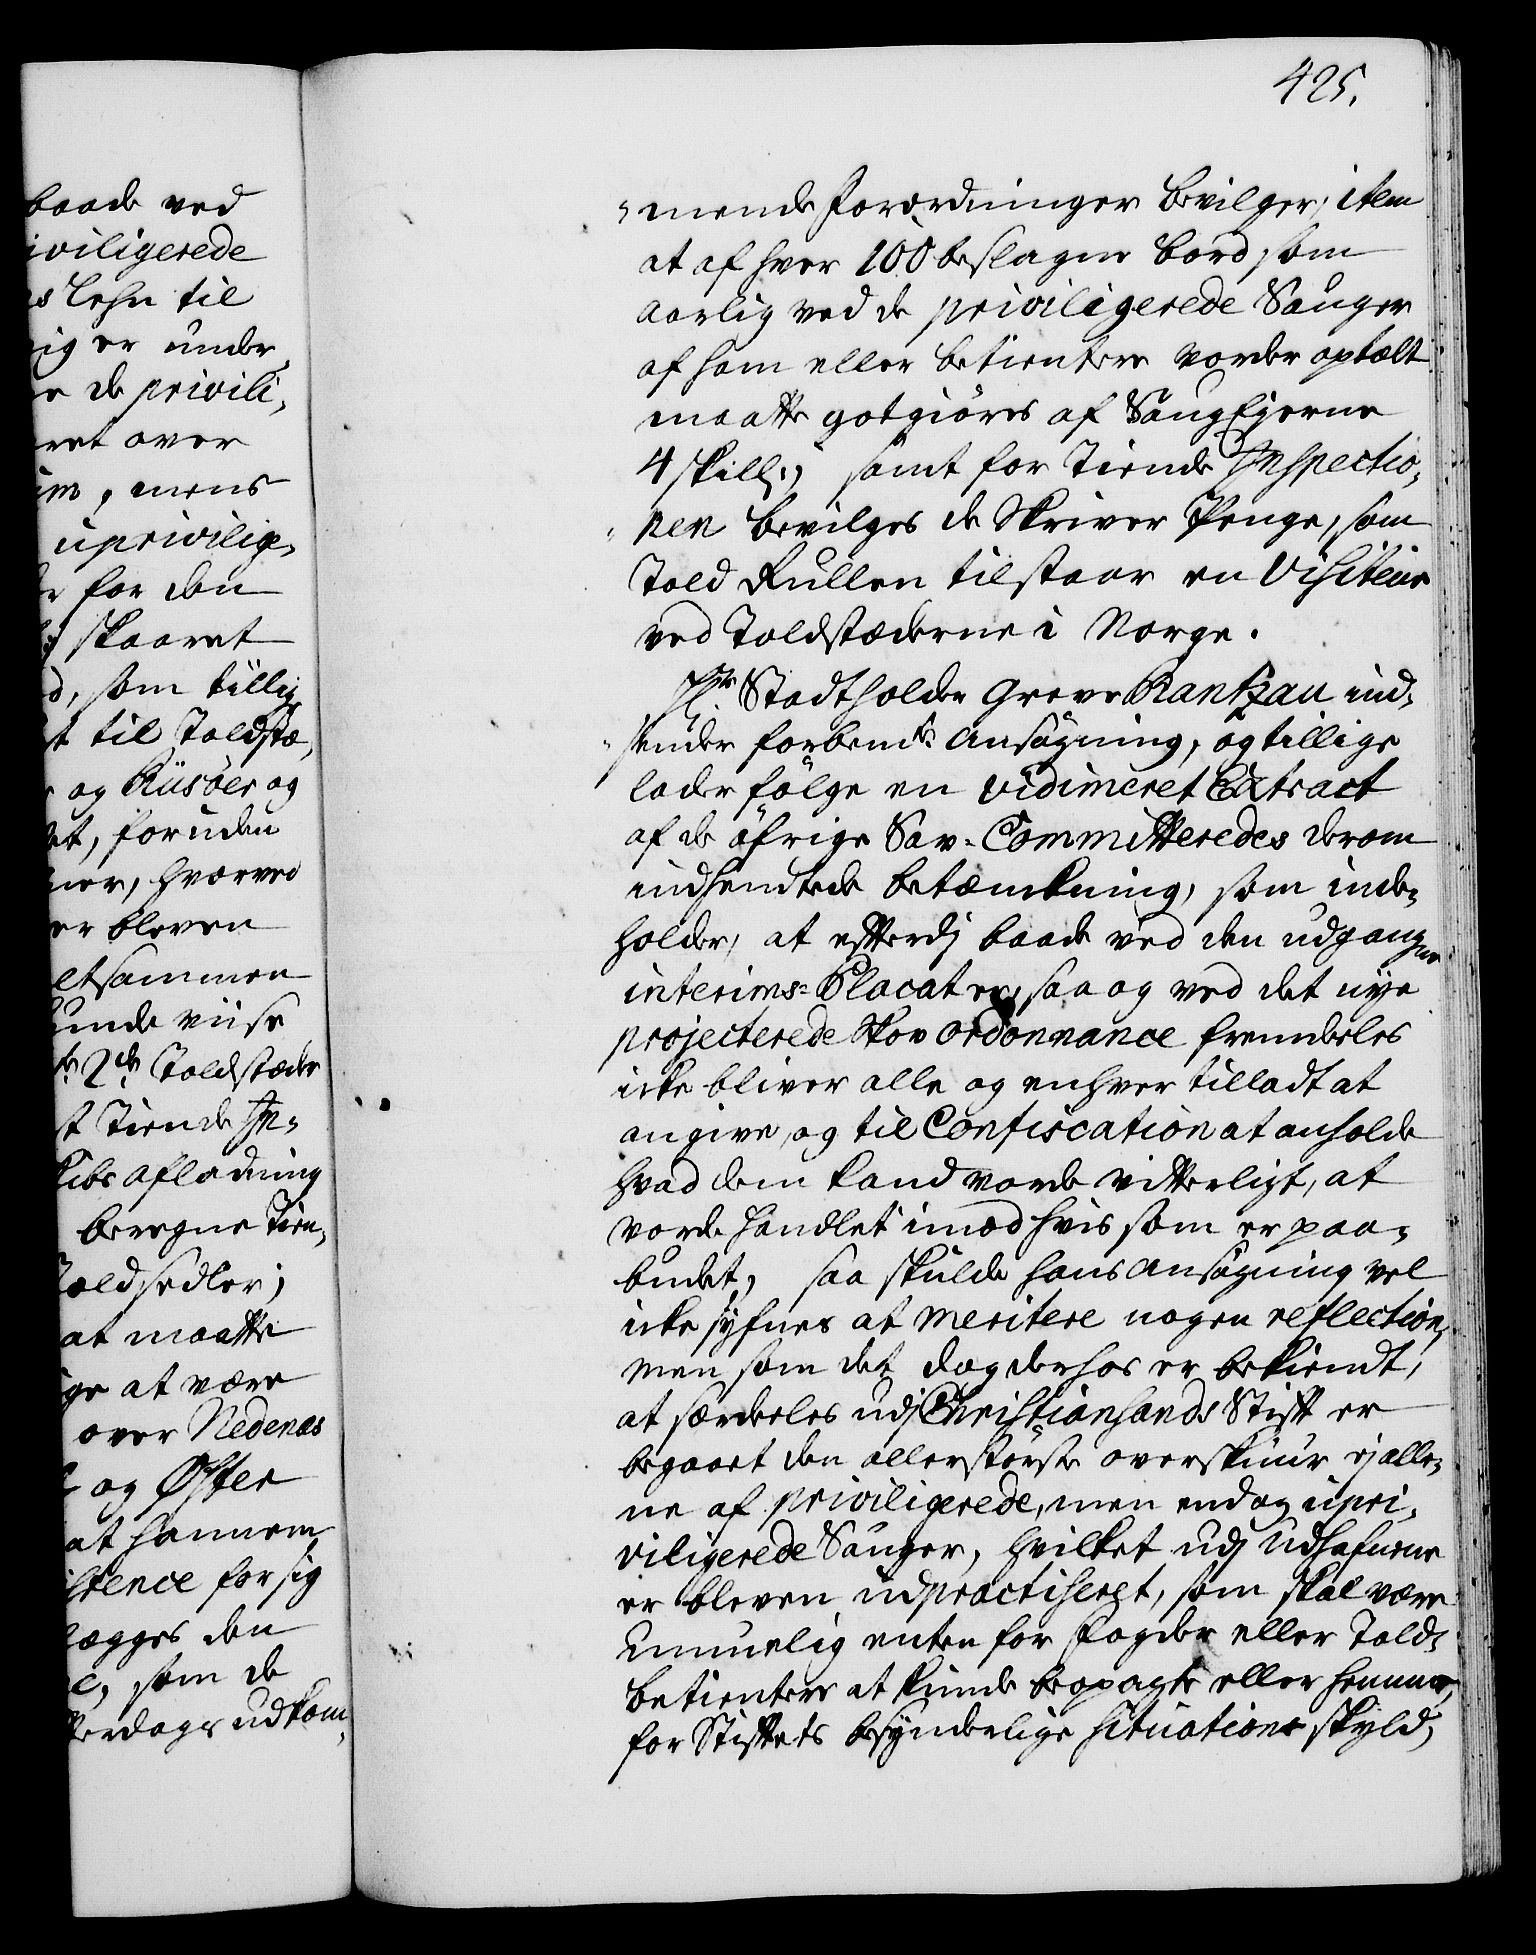 425.
baade ved
iviligerede
s Lehn til
ig er under
e de privili,
ret over
im, mens
upriviilig,
r for den
skaaret
d, som tillig
t til Toldstæ,
og Riisöer og
et, foruden
ner, hvorved
er bleven
etsammen
unde viise
2de Toldstæder
st Tiende In,
kibs afladning
beregne Tien,
Toldsedler;
at maatte
ge at være
over Nedenæs
og Öster
at hannem
istence for sig
lægges den
som de
terdags udkom,
mende Forordninger bevilger; item
at af hver 100 beslagne bord som
aarlig ved de priviligerede Sauger
af ham eller betientere vorder optælt
maatte gotgiöres af Saug Ejerne
4 skill:, samt for Tiende Inspectio,
nen bevilges de Skriver Penge, som
Told Rullen tilstaar en Visiteur
ved Toldstæderne i Norge.
Hr. Stadtholder Greve Rantzau ind,
sender forbemte ansögning, og tillige
lader fölge en vidimeret Extract
af de öfrige Sav-Committeredes derom
indhendtede betænkning, som inde,
holder, at efterdj baade ved den udgangne
interims-Placater, saa og ved det nye
projecterede Skov ordonnance fremdeles
icke bliver alle og enhver tilladt at
angive, og til Confiscation at anholde
hvad dem kand vorde vitterligt, at
vorde handlet imod hvis som er paa,
budet, saa skulde hans ansögning vel
icke syfnes at meritere nogen reflection,
men som det dog derhos er bekiendt,
at særdeles udj Christiansands Stift er
begaaet den allerstörste overskuur ej alle,
ne af priviligerede, men endog upri,
viligerede Sauger, hvilket udj Udhafnene
er bleven udpractiseret, som skal være
umuelig enten for Fogder eller Told,
betientere at kunde beopagte eller hemme,
for Stiftets besynderlige Situations skyld,